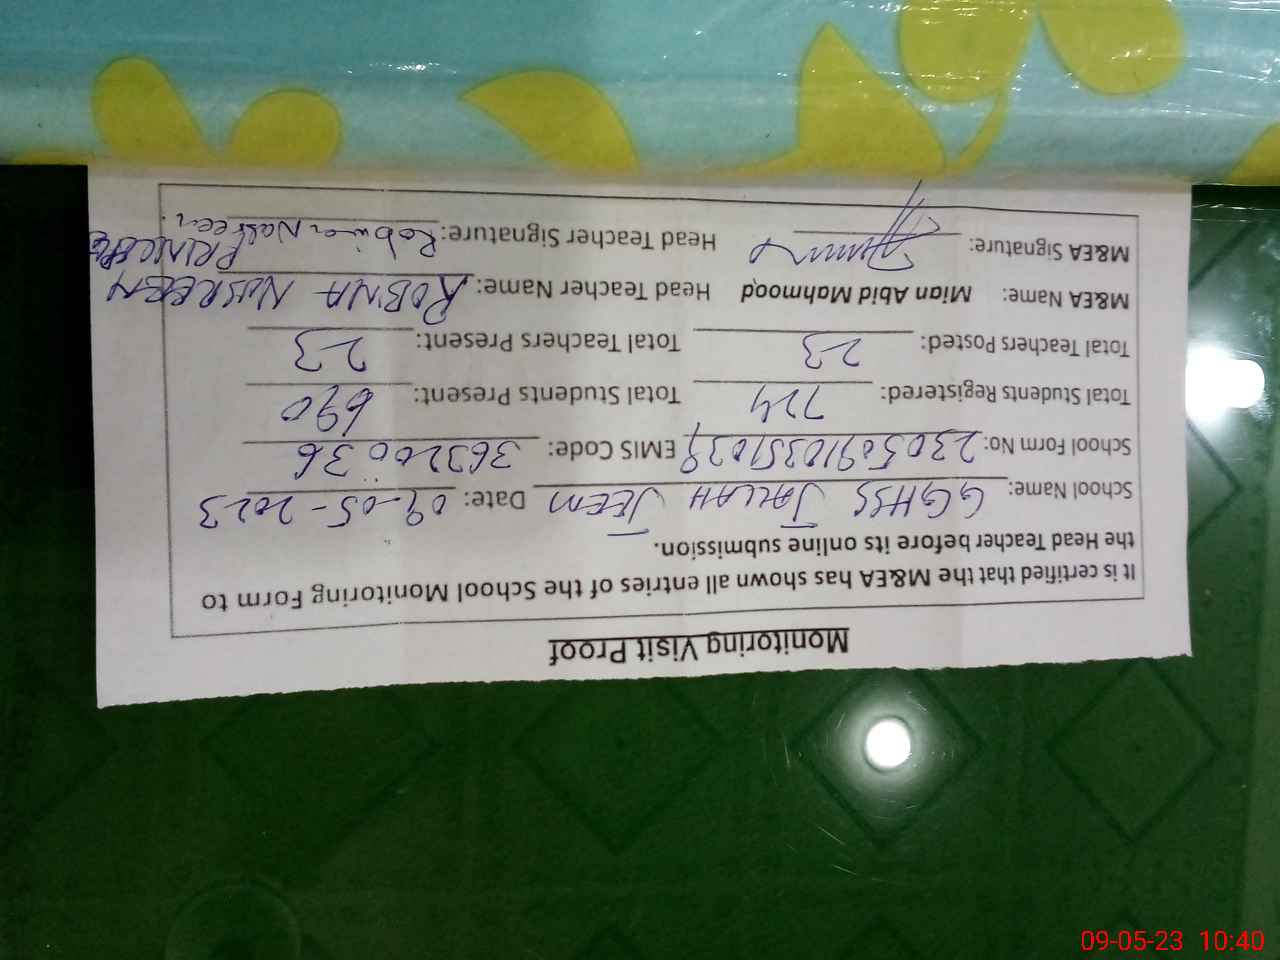 Monitoring Visit Proof
It is certified that the M&EA has shown all entries of the School Monitoring Form to
the Head Teacher before its online submission.
School Name: GGHSS JALLAH JEEM Date: 09-05-2023
School Form No: EMIS Code: 36320036
Total Students Registered: 724 Total Students Present: 690
Total Teachers Posted: 23 Total Teachers Present: 23
M&EA Name: Mian Abid Mahmood Head Teacher Name: ROBINA NASREEN
PRINCIPAL
M&EA Signature: Head Teacher Signature: Robina Nasreen.
09-05-23 10:40